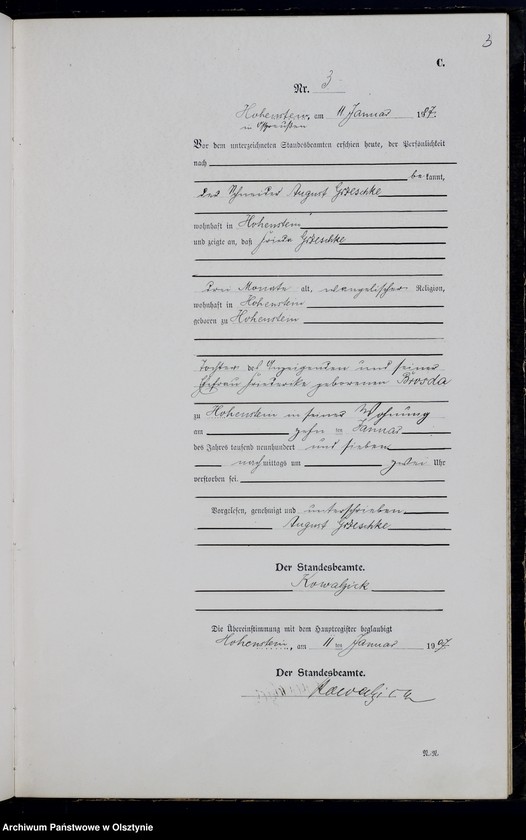 3
C.
Nr. 3
Hohenstein, am 11 Januar 1907.
in Ostpreußen
Vor dem unterzeichneten Standesbeamten erschien heute, der Persönlichkeit
nach
bekannt,
der Schneider August Göeschke
wohnhaft in Hohenstein
und zeigte an, daß Frieda Göeschke
drei Monate alt, evangelischer Religion,
wohnhaft in Hohenstein
geboren zu Hohenstein
Tochter des Anzeigenden und seiner
Ehefrau Friederike geborenen Brosda
zu Hohenstein in seiner Wohnung
am zehn ten Januar
des Jahres tausend neunhundert und sieben
nachmittags um zwei Uhr
verstorben sei.
Vorgelesen, genehmigt und unterschrieben
August Göeschke
Der Standesbeamte.
Kowalzick
Die Übereinstimmung mit dem Hauptregister beglaubigt
Hohenstein, am 11 ten Januar 1907.
Der Standesbeamte.
Kowalzick
N.N.
Archiwum Państwowe w Olsztynie